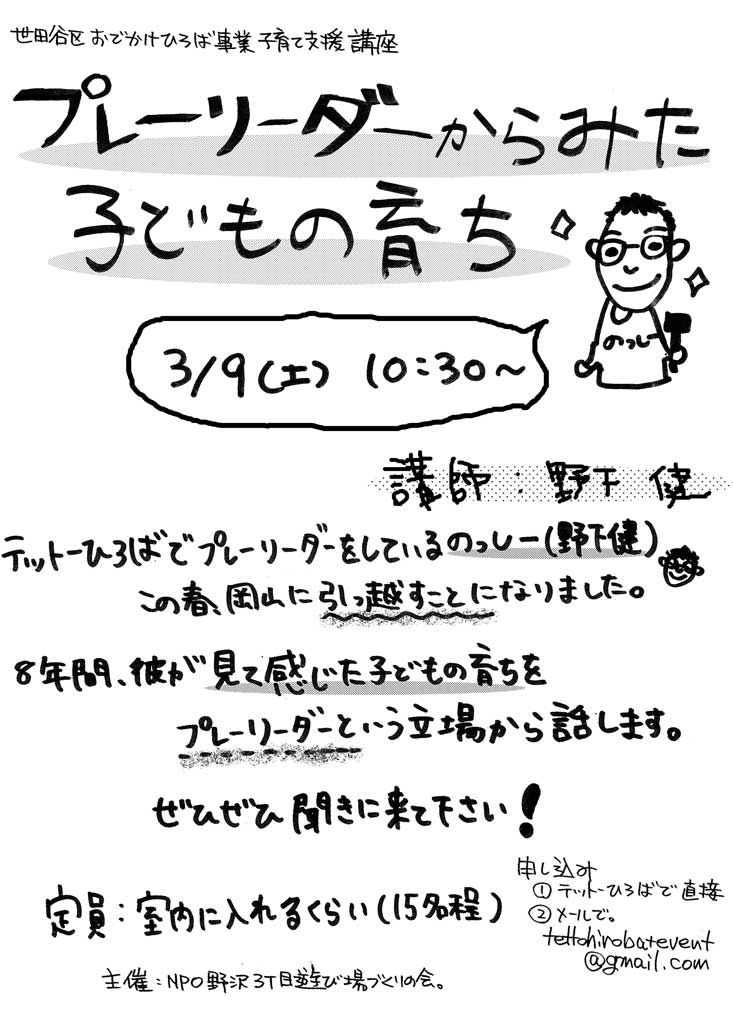 世田谷区おでかけひろば事業子育て支援講座
プレーリーダーからみた
子どもの育ち
のっしー
3/9(土) 10:30～
講師:野下 健
テットーひろばでプレーリーダーをしているのっしー(野下健)
この春、岡山に引っ越すことになりました。
8年間、彼が見て感じた子どもの育ちを
プレーリーダーという立場から話します。
ぜひぜひ聞きに来て下さい!
定員:室内に入れるくらい(15名程)
申し込み
①テットーひろばで直接
②メールで。
tettohirobatevent
@gmail.com
主催:NPO野沢3丁目遊び場づくりの会。